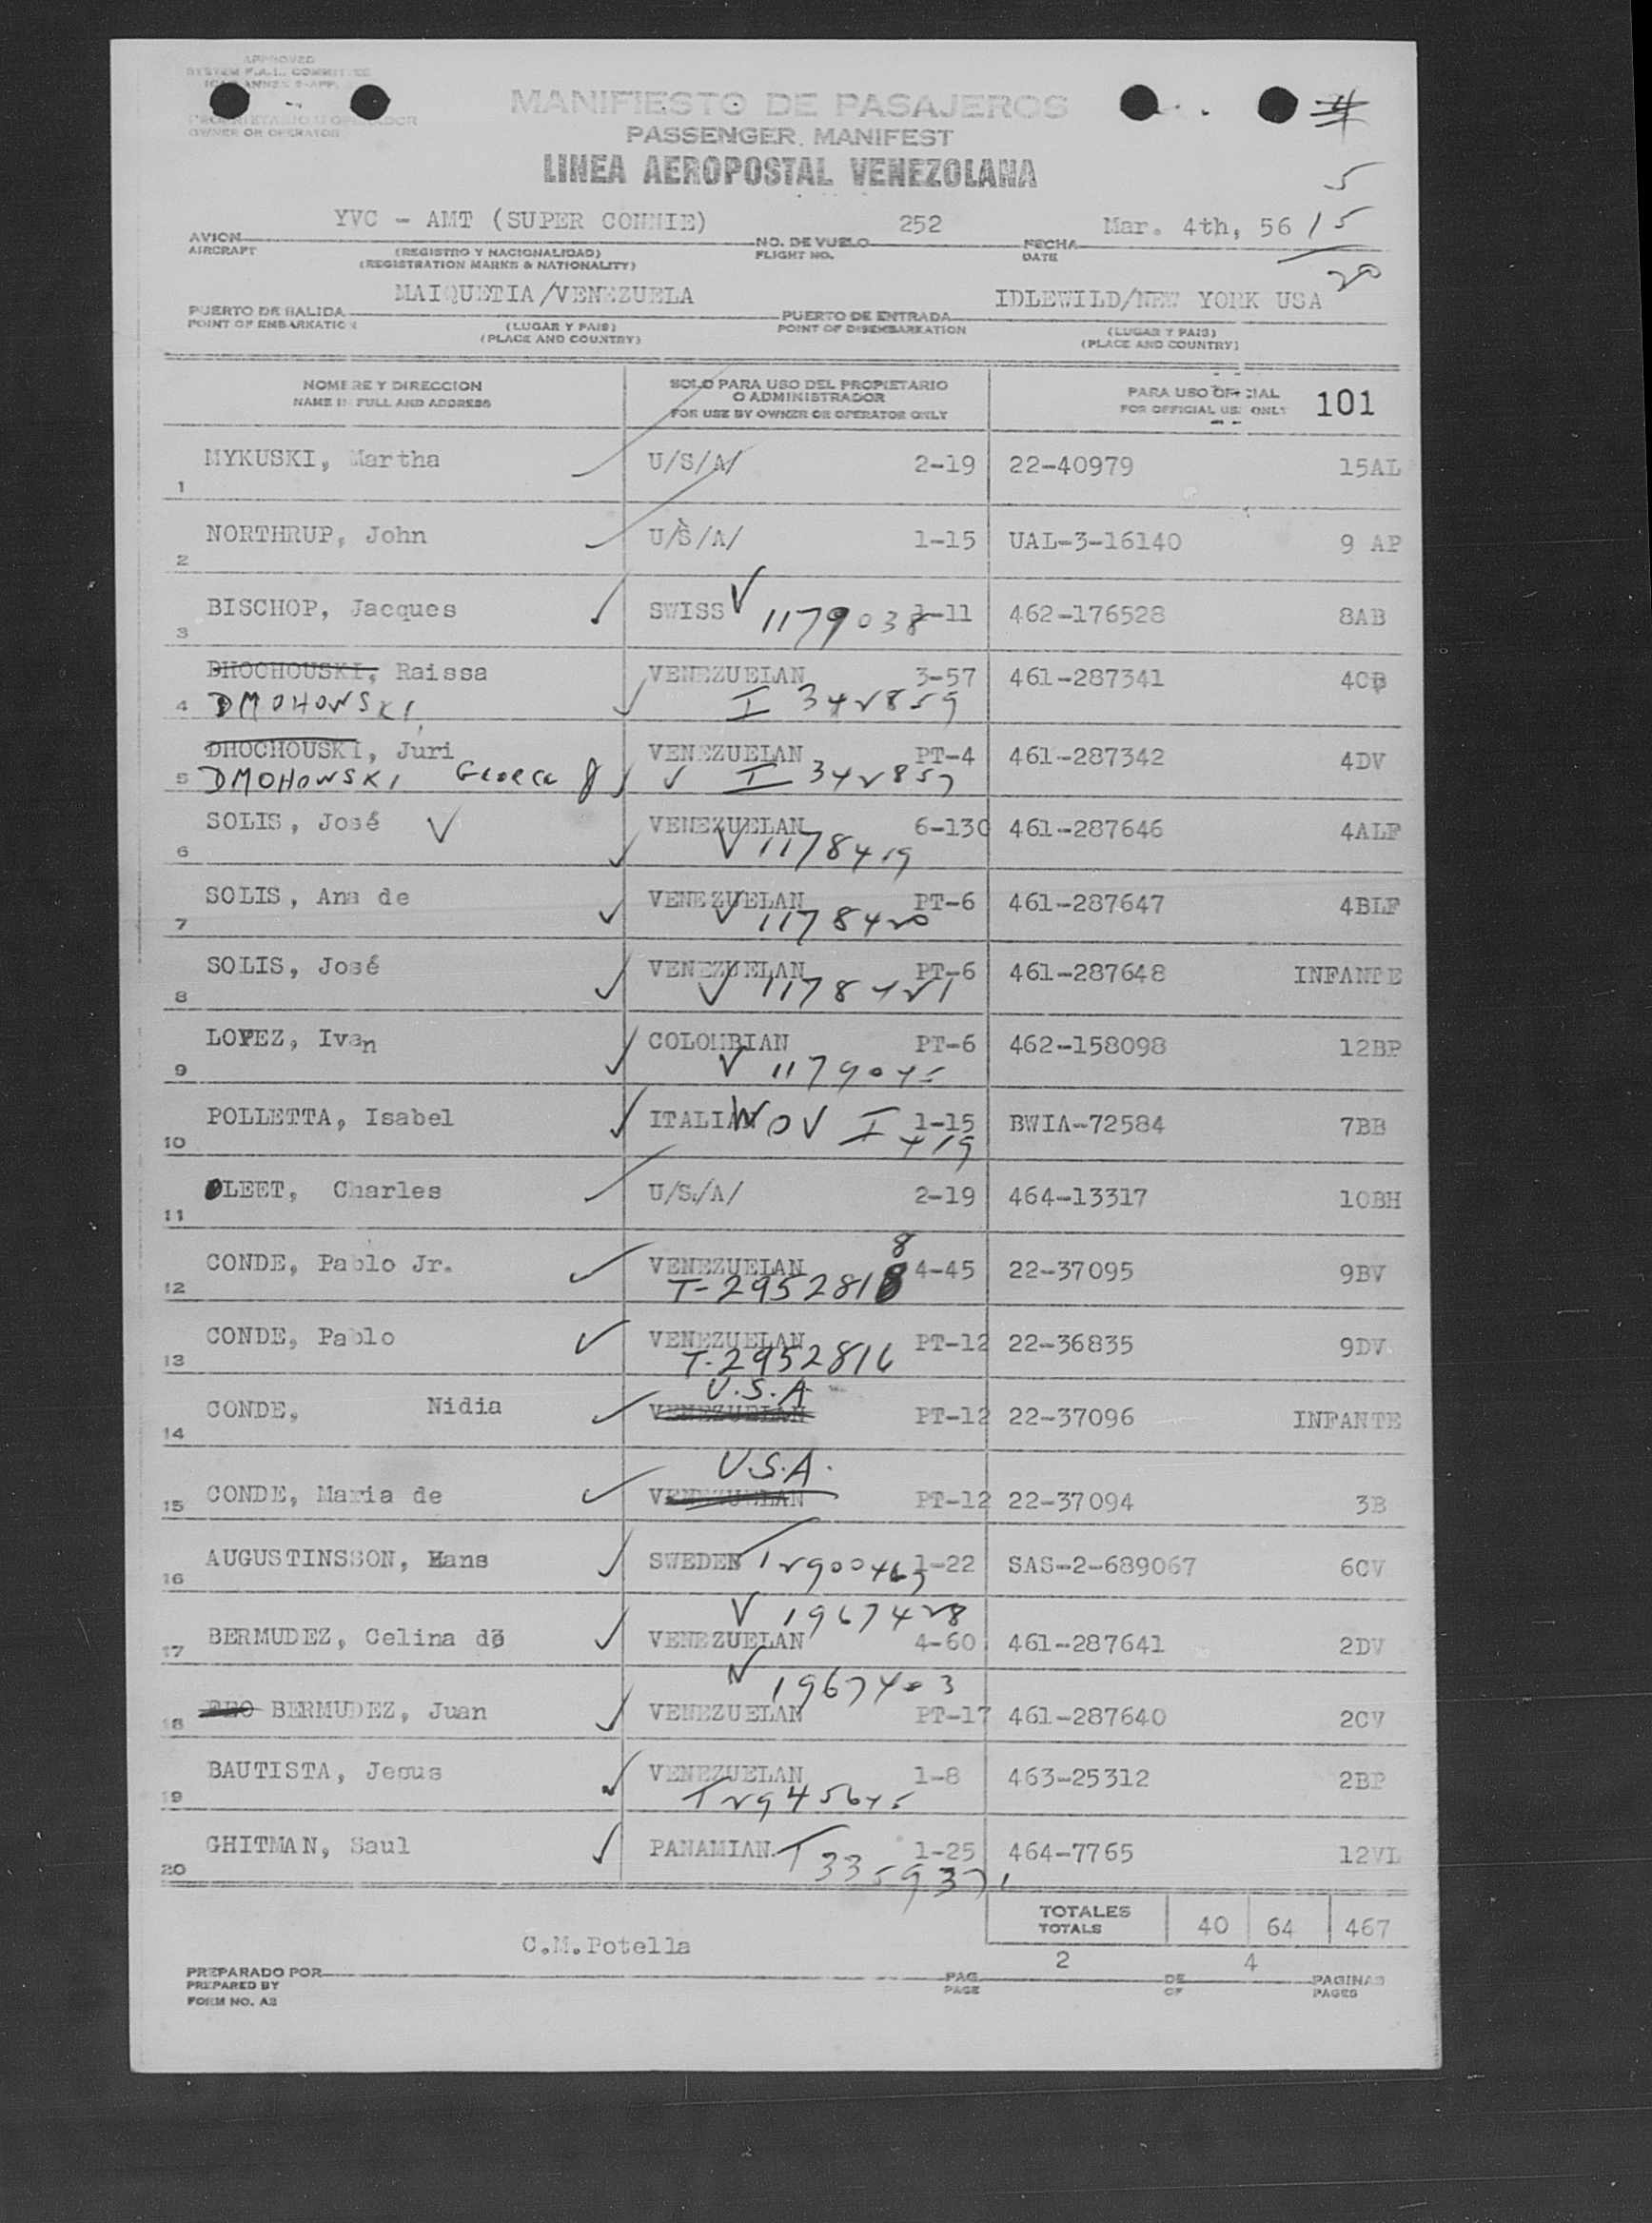 APPROVED
SYSTEM F.A.L. COMMITTEE
ICAO ANNEX 9-APP.
PROPIETARIO U OPERADOR
OWNER OR OPERATOR
MANIFIESTO DE PASAJEROS
PASSENGER MANIFEST
LINEA AEROPOSTAL VENEZOLANA
4
5
15
20
YVC - AMT (SUPER CONNIE) 252 Mar. 4th, 56
AVION NO. DE VUELO FECHA
AIRCRAFT (REGISTRO Y NACIONALIDAD) FLIGHT NO. DATE
(REGISTRATION MARKS & NATIONALITY)
MAIQUETIA/VENEZUELA IDLEWILD/NEW YORK USA
PUERTO DE SALIDA PUERTO DE ENTRADA
POINT OF EMBARKATION (LUGAR Y PAIS) POINT OF DISEMBARKATION (LUGAR Y PAIS)
(PLACE AND COUNTRY) (PLACE AND COUNTRY)
NOMBRE Y DIRECCION SOLO PARA USO DEL PROPIETARIO PARA USO OFICIAL 101
NAME IN FULL AND ADDRESS O ADMINISTRADOR FOR OFFICIAL USE ONLY
FOR USE BY OWNER OR OPERATOR ONLY
1 MYKUSKI, Martha U/S/A/ 2-19 22-40979 15AL
2 NORTHRUP, John U/S/A/ 1-15 UAL-3-16140 9 AP
3 BISCHOP, Jacques SWISS V 1179038 1-11 462-176528 8AB
DHOCHOUSKI, Raissa VENEZUELAN 3-57 461-287341 4CB
4 DMOHOWSKI I 342859
DHOCHOUSKI, Juri VENEZUELAN PT-4 461-287342 4DV
5 DMOHOWSKI George J I 342857
SOLIS, José V VENEZUELAN 6-130 461-287646 4ALF
6 V 1178419
SOLIS, Ana de VENEZUELAN PT-6 461-287647 4BLF
7 V 1178420
SOLIS, José VENEZUELAN PT-6 461-287648 INFANTE
8 V 1178421
LOPEZ, Ivan COLOMBIAN PT-6 462-158098 12BP
9 V 1179045
POLLETTA, Isabel ITALIAN WOV I 1-15 BWIA-72584 7BB
10 419
11 LEET, Charles U/S/A/ 2-19 464-13317 10BH
8
CONDE, Pablo Jr. VENEZUELAN 4-45 22-37095 9BV
12 T-2952818
CONDE, Pablo VENEZUELAN PT-12 22-36835 9DV
13 T-2952816
U.S.A
14 CONDE, Nidia VENEZUELAN PT-12 22-37096 INFANTE
U.S.A.
15 CONDE, Maria de VENEZUELAN PT-12 22-37094 3B
16 AUGUSTINSSON, Hans SWEDEN 1-22 SAS-2-689067 6CV
V 1967428
17 BERMUDEZ, Celina de VENEZUELAN 4-60 461-287641 2DV
V 1967403
18 BERMUDEZ, Juan VENEZUELAN PT-17 461-287640 2CV
BAUTISTA, Jesus VENEZUELAN 1-8 463-25312 2BP
19 T 2945645
GHITMAN, Saul PANAMIAN T 1-25 464-7765 12VL
20 3359371
TOTALES 40 64 467
TOTALS
C.M.Potella 2 4
PREPARADO POR PAG. DE PAGINAS
PREPARED BY PAGE OF PAGES
FORM NO. A2